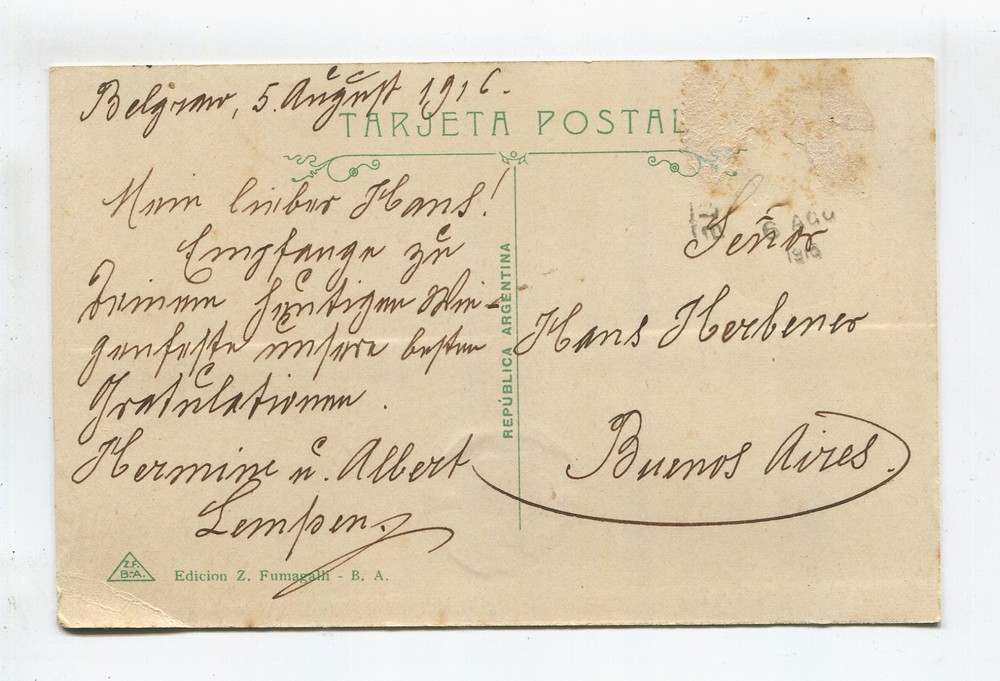 Belgrano, 5. August 1916.
TARJETA POSTAL
Mein lieber Hans!
Empfange zu
Deinem heutigen Wie-
genfeste unsere besten
Gratulationen.
Hermine u. Albert
REPÚBLICA ARGENTINA
6 AGO
1916
Señor
Hans Herbener
Buenos Aires.
Z.F.
B-A.
Edicion Z. Fumagalli - B. A.